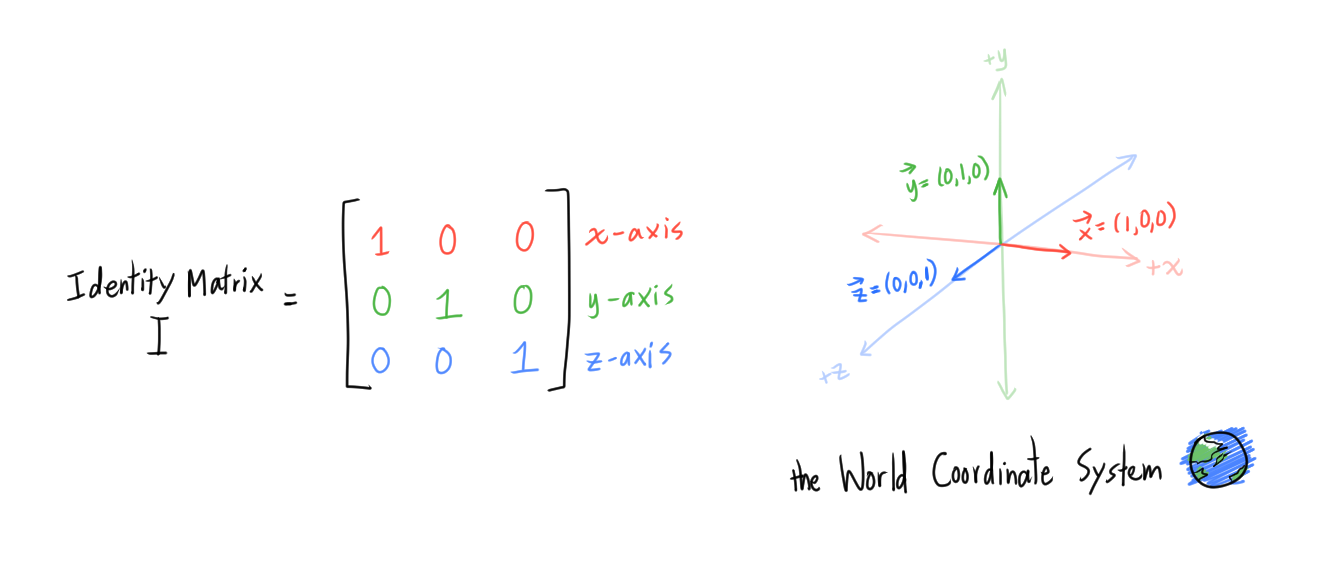 Identity Matrix
I
=
1 0 0 x-axis
0 1 0 y-axis
0 0 1 z-axis
+y
y⃗ = (0,1,0)
x⃗ = (1,0,0)
+x
z⃗ = (0,0,1)
+z
the World Coordinate System